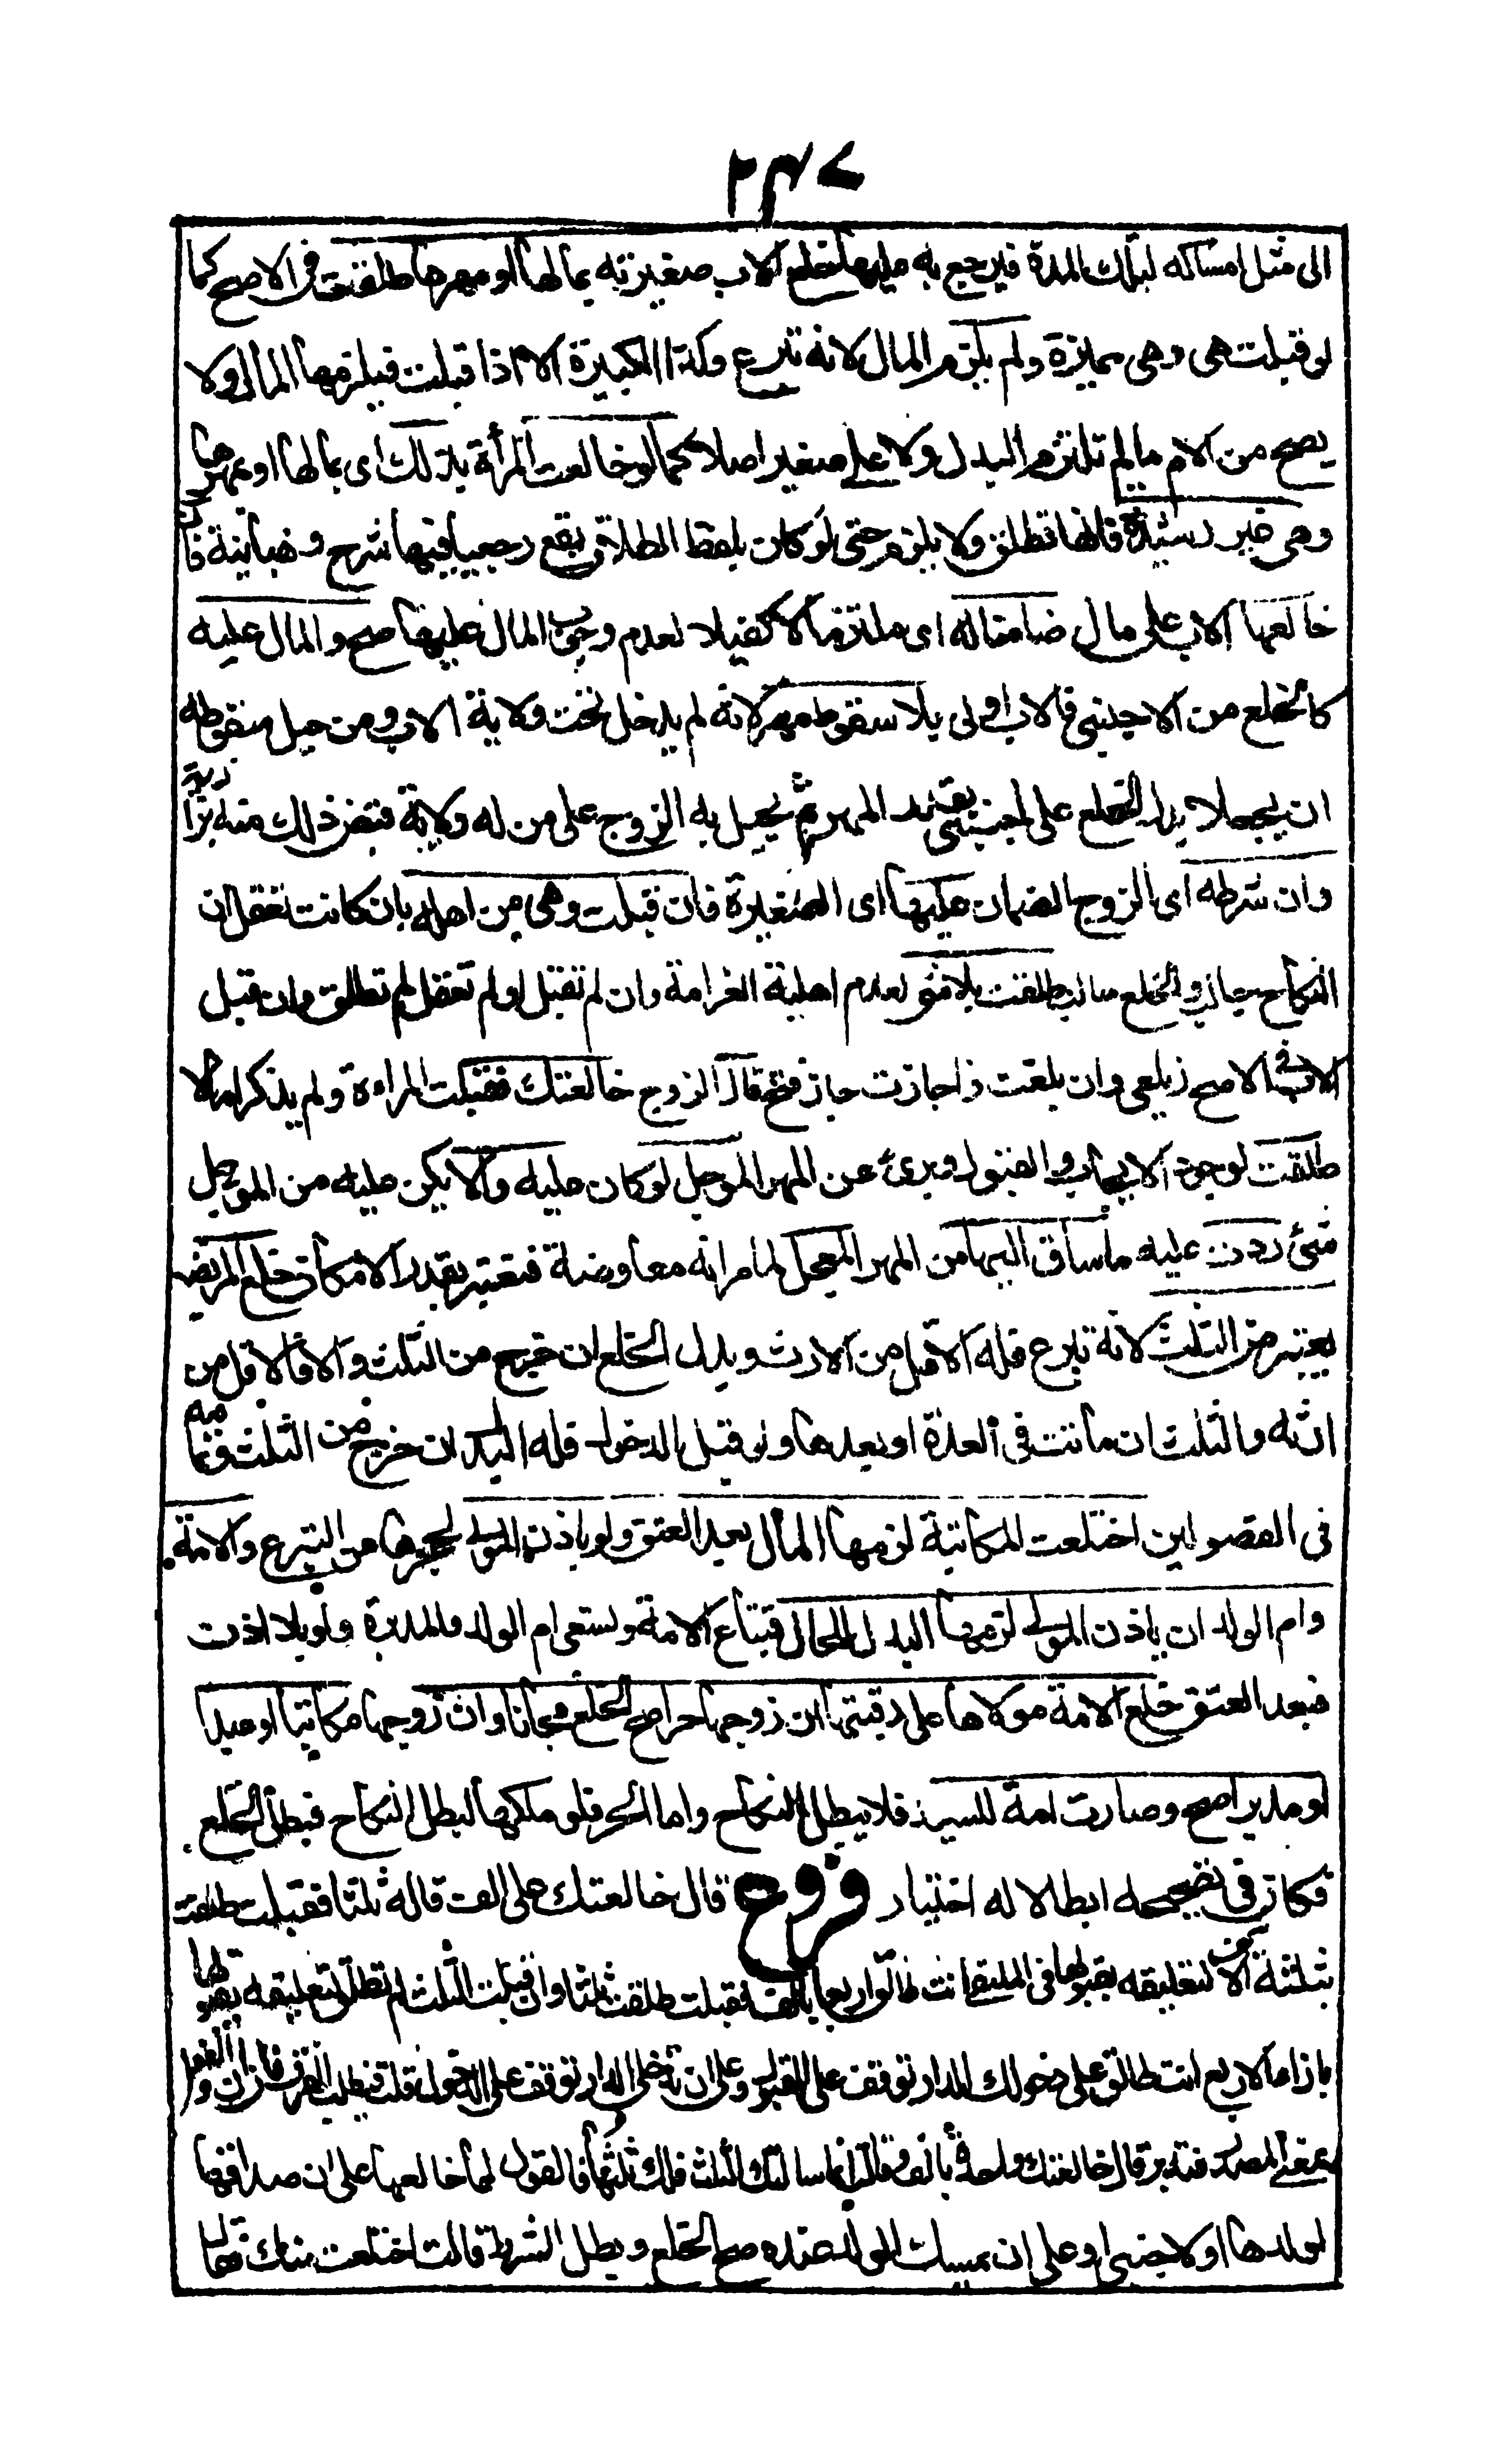 ٢٣٧
الى مثل امساكه لتلك المدة فيرجع به عليها خلع الاب صغيرته بمالها او مهرها طلقت فى الاصح كما
لو قبلت هى وهى مميزة ولم يلزم المال لانه تبرع وكذا الكبيرة الا اذا قبلت فيلزمها المال ولا
يصح من الام مالم تلتزم البدل ولا على صغير اصلا كما لو خالعت المرأة بذلك اى بمالها او بمهرها
وهى غير رشيدة فانها تطلق ولا يلزم حتى لو كان بلفظ الطلاق يقع رجعيا فيهما شرح وهبانية فان
خالعها الاب على مال ضامنا له اى ملتزما لا كفيلا لعدم وجوب المال عليها صح والمال عليه
كالخلع من الاجنبى فالاب اولى بلا سقوط مهر لانه لم يدخل تحت ولاية الاب ومن حيل سقوطه
ان يجعلا بدل الخلع على اجنبى بقدر المهر ثم يحيل به الزوج على من له ولاية قبض ذلك منه بزازية
وان شرطه اى الزوج الضمان عليها اى الصغيرة فان قبلت وهى من اهله بان كانت تعقل ان
النكاح جالب والخلع سالب طلقت بلا شئ لعدم اهلية الغرامة وان لم تقبل او لم تعقل لم تطلق وان قبل
الاب فى الاصح زيلعى وان بلغت واجازت جاز فتح قال الزوج خالعتك فقبلت المراءة ولم يذكرا مالا
طلقت لوجود الايجاب والقبول وبرئ عن المهر المؤجل لو كان عليه والا يكن عليه من المؤجل
شئ ردت عليه ما ساق اليها من المهر المعجل لما مر انه معاوضة فتعتبر بقدر الامكان خلع المريضة
يعتبر من الثلث لانه تبرع فله الاقل من الارث وبدل الخلع ان خرج من الثلث والا فالاقل من
ارثه والثلث ان ماتت فى العدة او بعدها ولو قبل الدخول فله البدل ان خرج من الثلث وتمامه
فى الفصولين اختلعت المكاتبة لزمها المال بعد العتق ولو باذن المولى لحجرها عن التبرع والامة
وام الولد ان باذن المولى لزمها البدل للحال فتباع الامة وتسعى ام الولد والمدبرة ولو بلا اذن
فبعد العتق خلع الامة مولاها على رقبتها ان زوجها حرا صح الخلع مجانا وان زوجها مكاتبا او عبدا
او مدبرا صح وصارت امة للسيد فلا يبطل النكاح واما الحر فلو ملكها لبطل النكاح فبطل الخلع
فكان فى تصحيحه ابطاله اختيار فروع قال خالعتك على الف قاله ثلثا فقبلت طلقت
بثلثة آلاف لتعليقه بقبولها فى الملتقى انت طالق اربعا بالف فقبلت طلقت ثلثا وان قبلت الثلث لم تطلق لتعليقه بقبولها
بازاء الاربع انت طالق على دخولك الدار توقف على القبول وعلى ان تدخلى الدار توقف على الدخول قلت فيطلب الفرق فان ان والفعل
بمعنى المصدر فتدبر قال خالعتك واحدة بالف وقالت انما سالتك الثلث فلك ثلثها فالقول لها خالعها على ان صداقها
لولدها او لاجنبى او على ان يمسك الولد عنده صح الخلع وبطل الشرط قالت اختلعت منك فقال